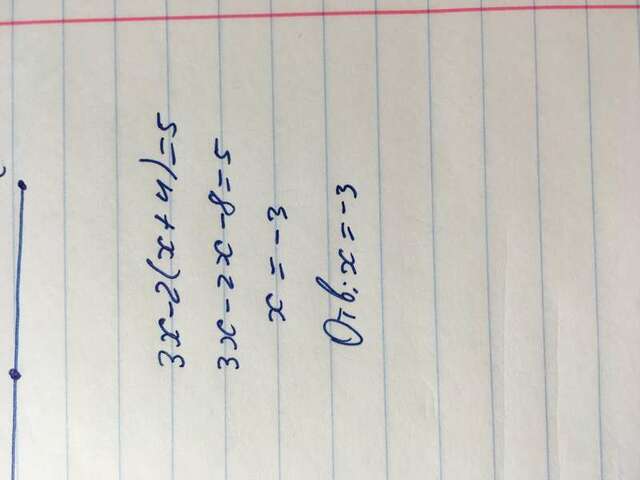 3x-2(x+4)=5
3x-2x-8=5
x=-3
Отв: x=-3